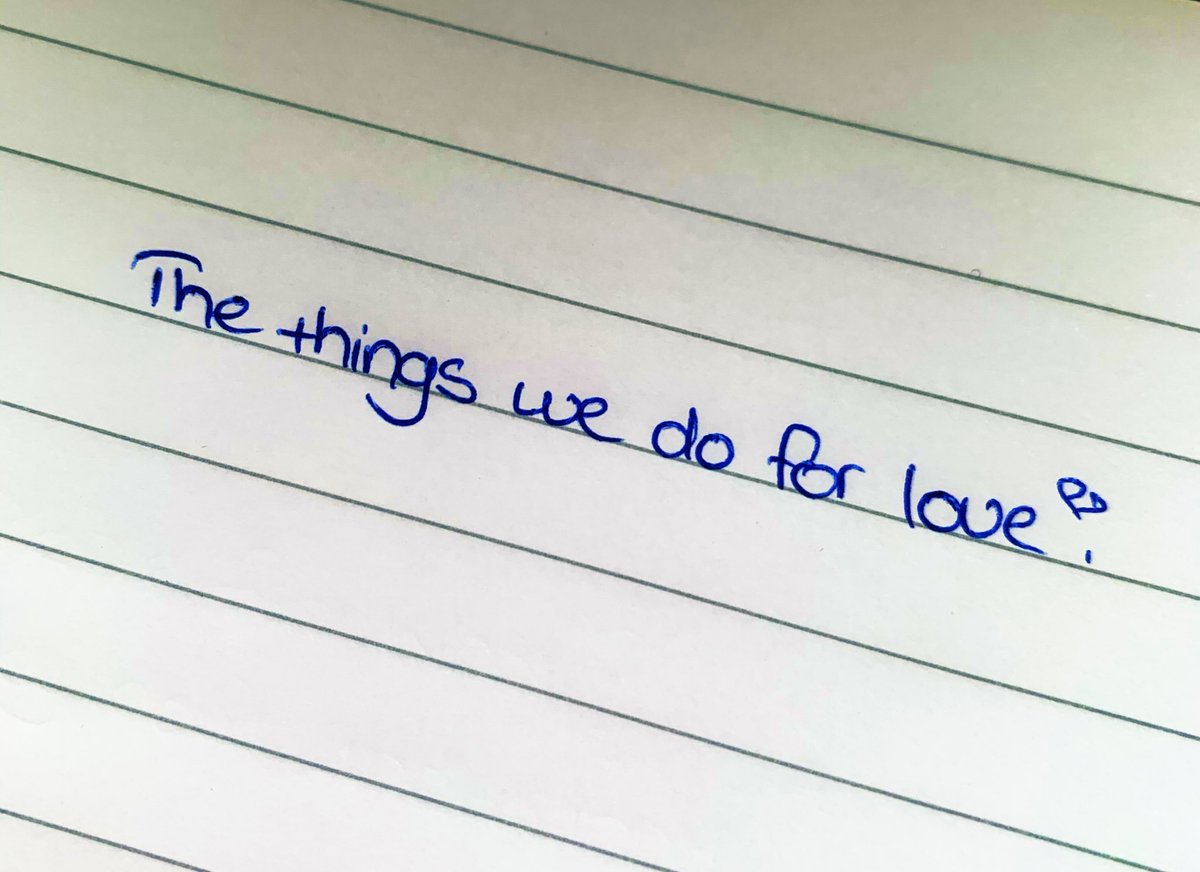 The things we do for love♡.